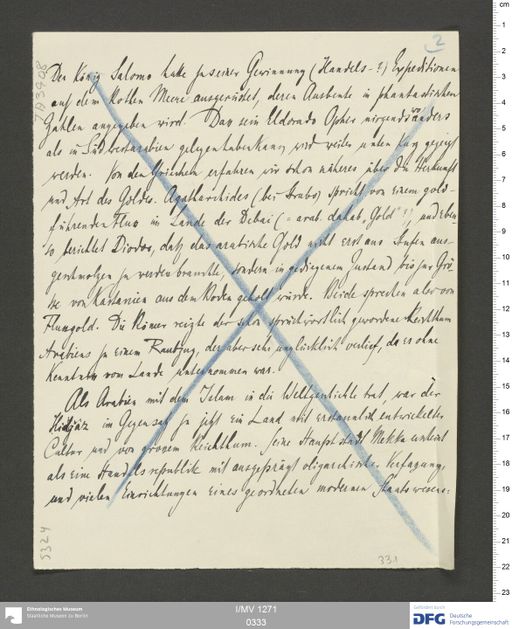 2
Der König Salomo hatte zu seiner Gewinnung (Handels-?) Expeditionen
auf dem Rothen Meere ausgerüstet, deren Ausbeute in phantastischen
Zahlen angegeben wird. Dass sein Eldorado Ophir nirgends anders
als in Südwestarabien gelegen haben kann, wird weiter unten kurz gezeigt
werden. Von den Griechen erfahren wir schon näheres über die Herkunft
und Art des Goldes. Agatharchides (bei Strabo) spricht von einem gold-
führenden Fluss im Lande der Debai (= arab. dahab, Gold"!) und eben-
so berichtet Diodor, daß das arabische Gold nicht erst aus Stufen aus-
geschmolzen zu werden brauchte, sondern in gediegenem Zustand bis zur Grö-
ße von Kastanien aus dem Boden geholt würde. Beide sprechen aber von
Flussgold. Die Römer reizte der schon sprichwörtlich gewordene Reichthum
Arabiens zu einem Raubzug, der aber sehr unglücklich verlief, da es ohne
Kenntniss vom Lande unternommen war.
Als Arabien mit dem Islam in die Weltgeschichte trat, war der
Ḥidjâz im Gegensatz zu jetzt ein Land mit erstaunlich entwickelter
Cultur und von grossem Reichthum. Seine Hauptstadt Mekka
als eine Handelsrepublik mit ausgeprägt oligarchischer Verfassung,
und vielen Einrichtungen eines geordneten modernen Staatswesens:
5324
331
cm
1
2
3
4
5
6
7
8
9
10
11
12
13
14
15
16
17
18
19
20
21
22
23
Ethnologisches Museum
Staatliche Museen zu Berlin
I/MV 1271
0333
Gefördert durch
DFG Deutsche
Forschungsgemeinschaft